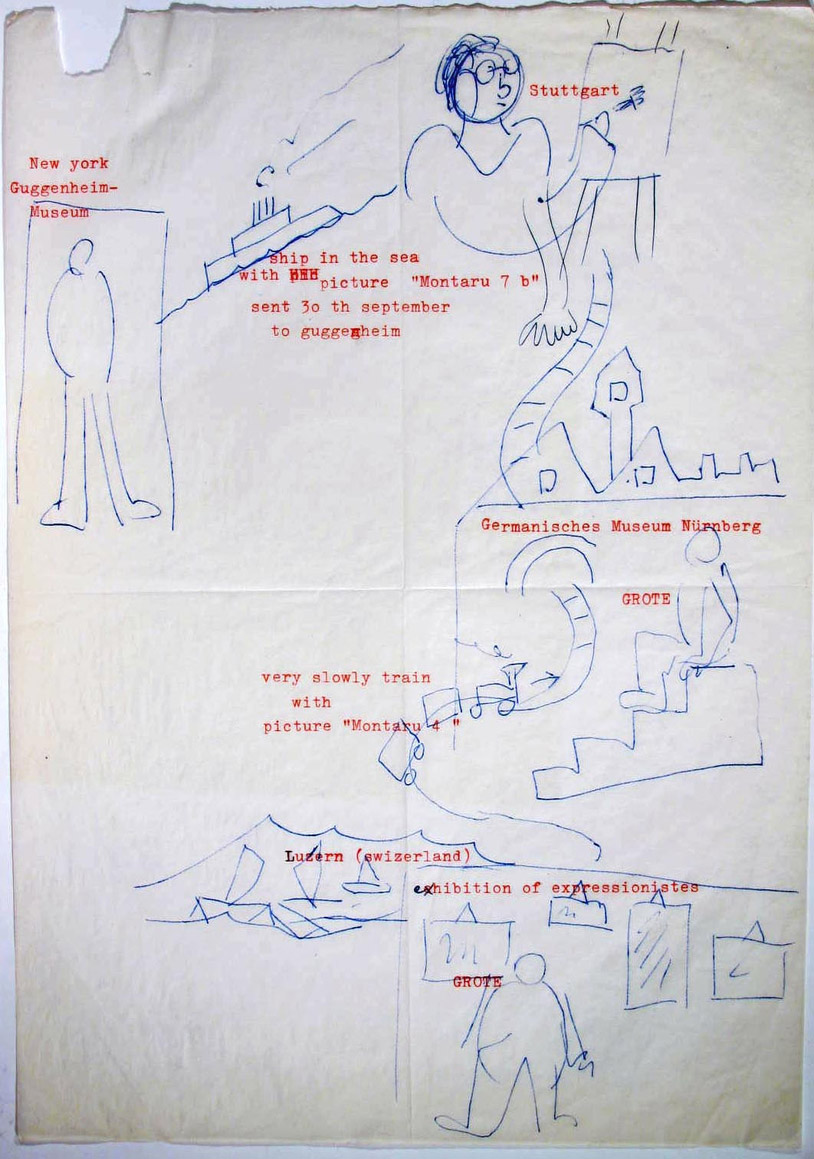 Stuttgart
New york
Guggenheim-
Museum
ship in the sea
with picture "Montaru 7 b"
sent 3o th september
to guggenheim
Germanisches Museum Nürnberg
GROTE
very slowly train
with
picture "Montaru 4 "
Luzern (swizerland)
exhibition of expressionistes
GROTE